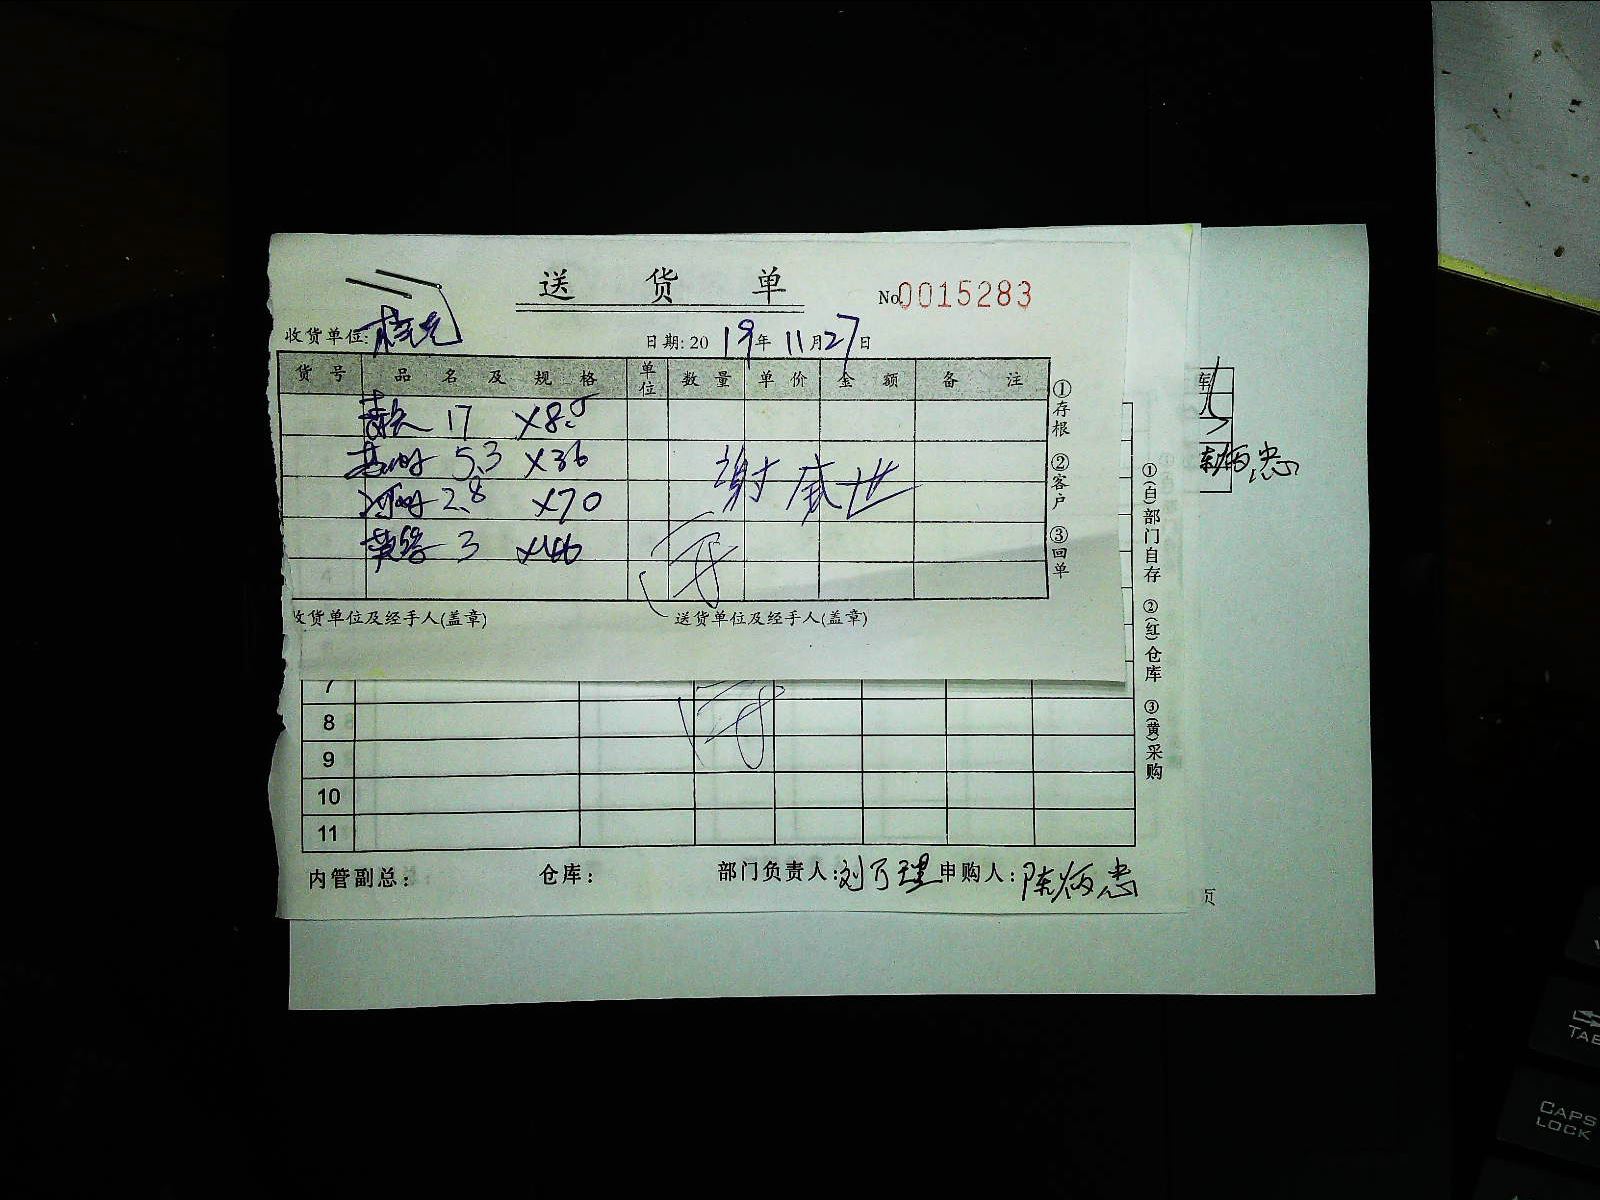 送货单
No.0015283
收货单位:
日期: 2019年11月27日
货号 品名及规格 单位 数量 单价 金额 备注
17 ×8.5
5.3 ×36
2.8 ×70
3 ×46
谢威世
4
收货单位及经手人(盖章) 送货单位及经手人(盖章)
①存根 ②客户 ③回单
7
8
9
10
11
①(白)部门自存 ②(红)仓库 ③(黄)采购
内管副总: 仓库: 部门负责人:刘万理 申购人:陈炳忠
陈炳忠
页
TAB
CAPS LOCK